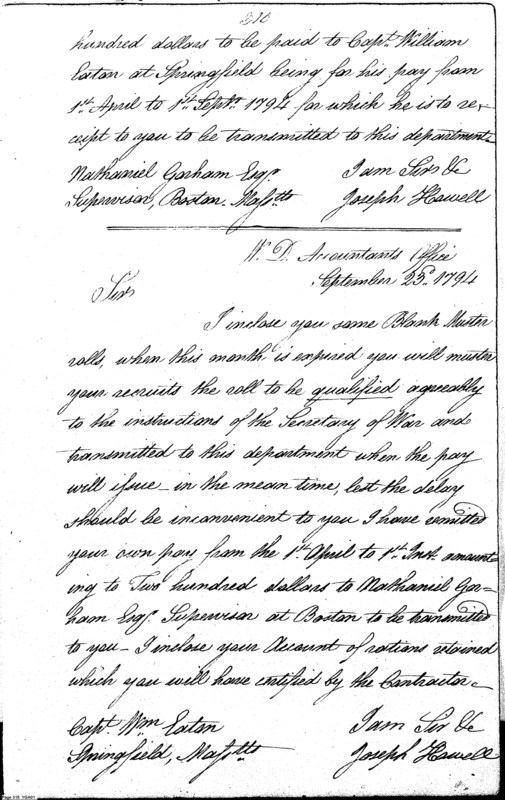 310
hundred dollars to be paid to Capt. William
Eaton at Springfield being for his pay from
1st April to 1st Septr. 1794 for which he is to re-
ceipt to you to be transmitted to this department.
Nathaniel Gorham Esqr. I am Sir &c
Supervisor, Boston, Masstts Joseph Howell
W. D. Accountants Office
September 23d. 1794
Sir
I inclose you some Blank Muster
rolls, when this month is expired you will muster
your recruits the roll to be qualified agreeably
to the instructions of the Secretary of War and
transmitted to this department when the pay
will issue - in the mean time, lest the delay
should be inconvenient to you I have remitted
your own pay from the 1st April to 1st Inst. amount-
ing to Two hundred dollars to Nathaniel Gor-
ham Esqr. Supervisor at Boston to be transmitted
to you - I inclose your Account of rations retained
which you will have certified by the Contractor -
Capt. Wm Eaton I am Sir &c
Springfield, Masstts Joseph Howell